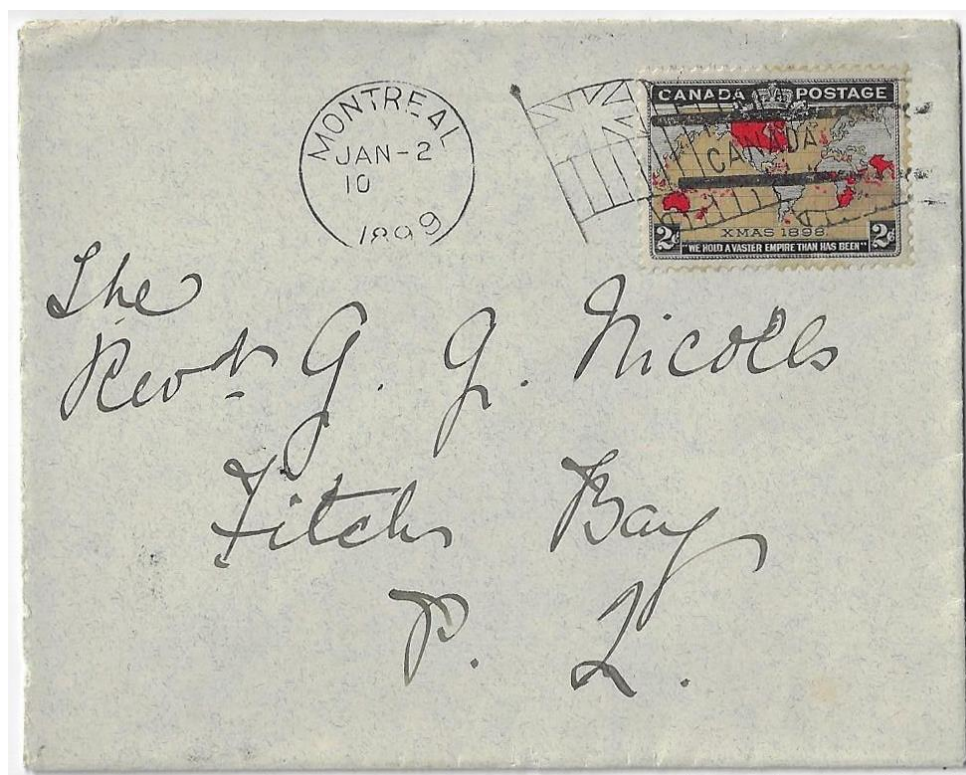 MONTREAL
JAN-2
10
1899
CANADA POSTAGE
CANADA
XMAS 1898
2c 2c
"WE HOLD A VASTER EMPIRE THAN HAS BEEN"
The
Revd. G. G. Nicolls
Fitch Bay
P. Q.